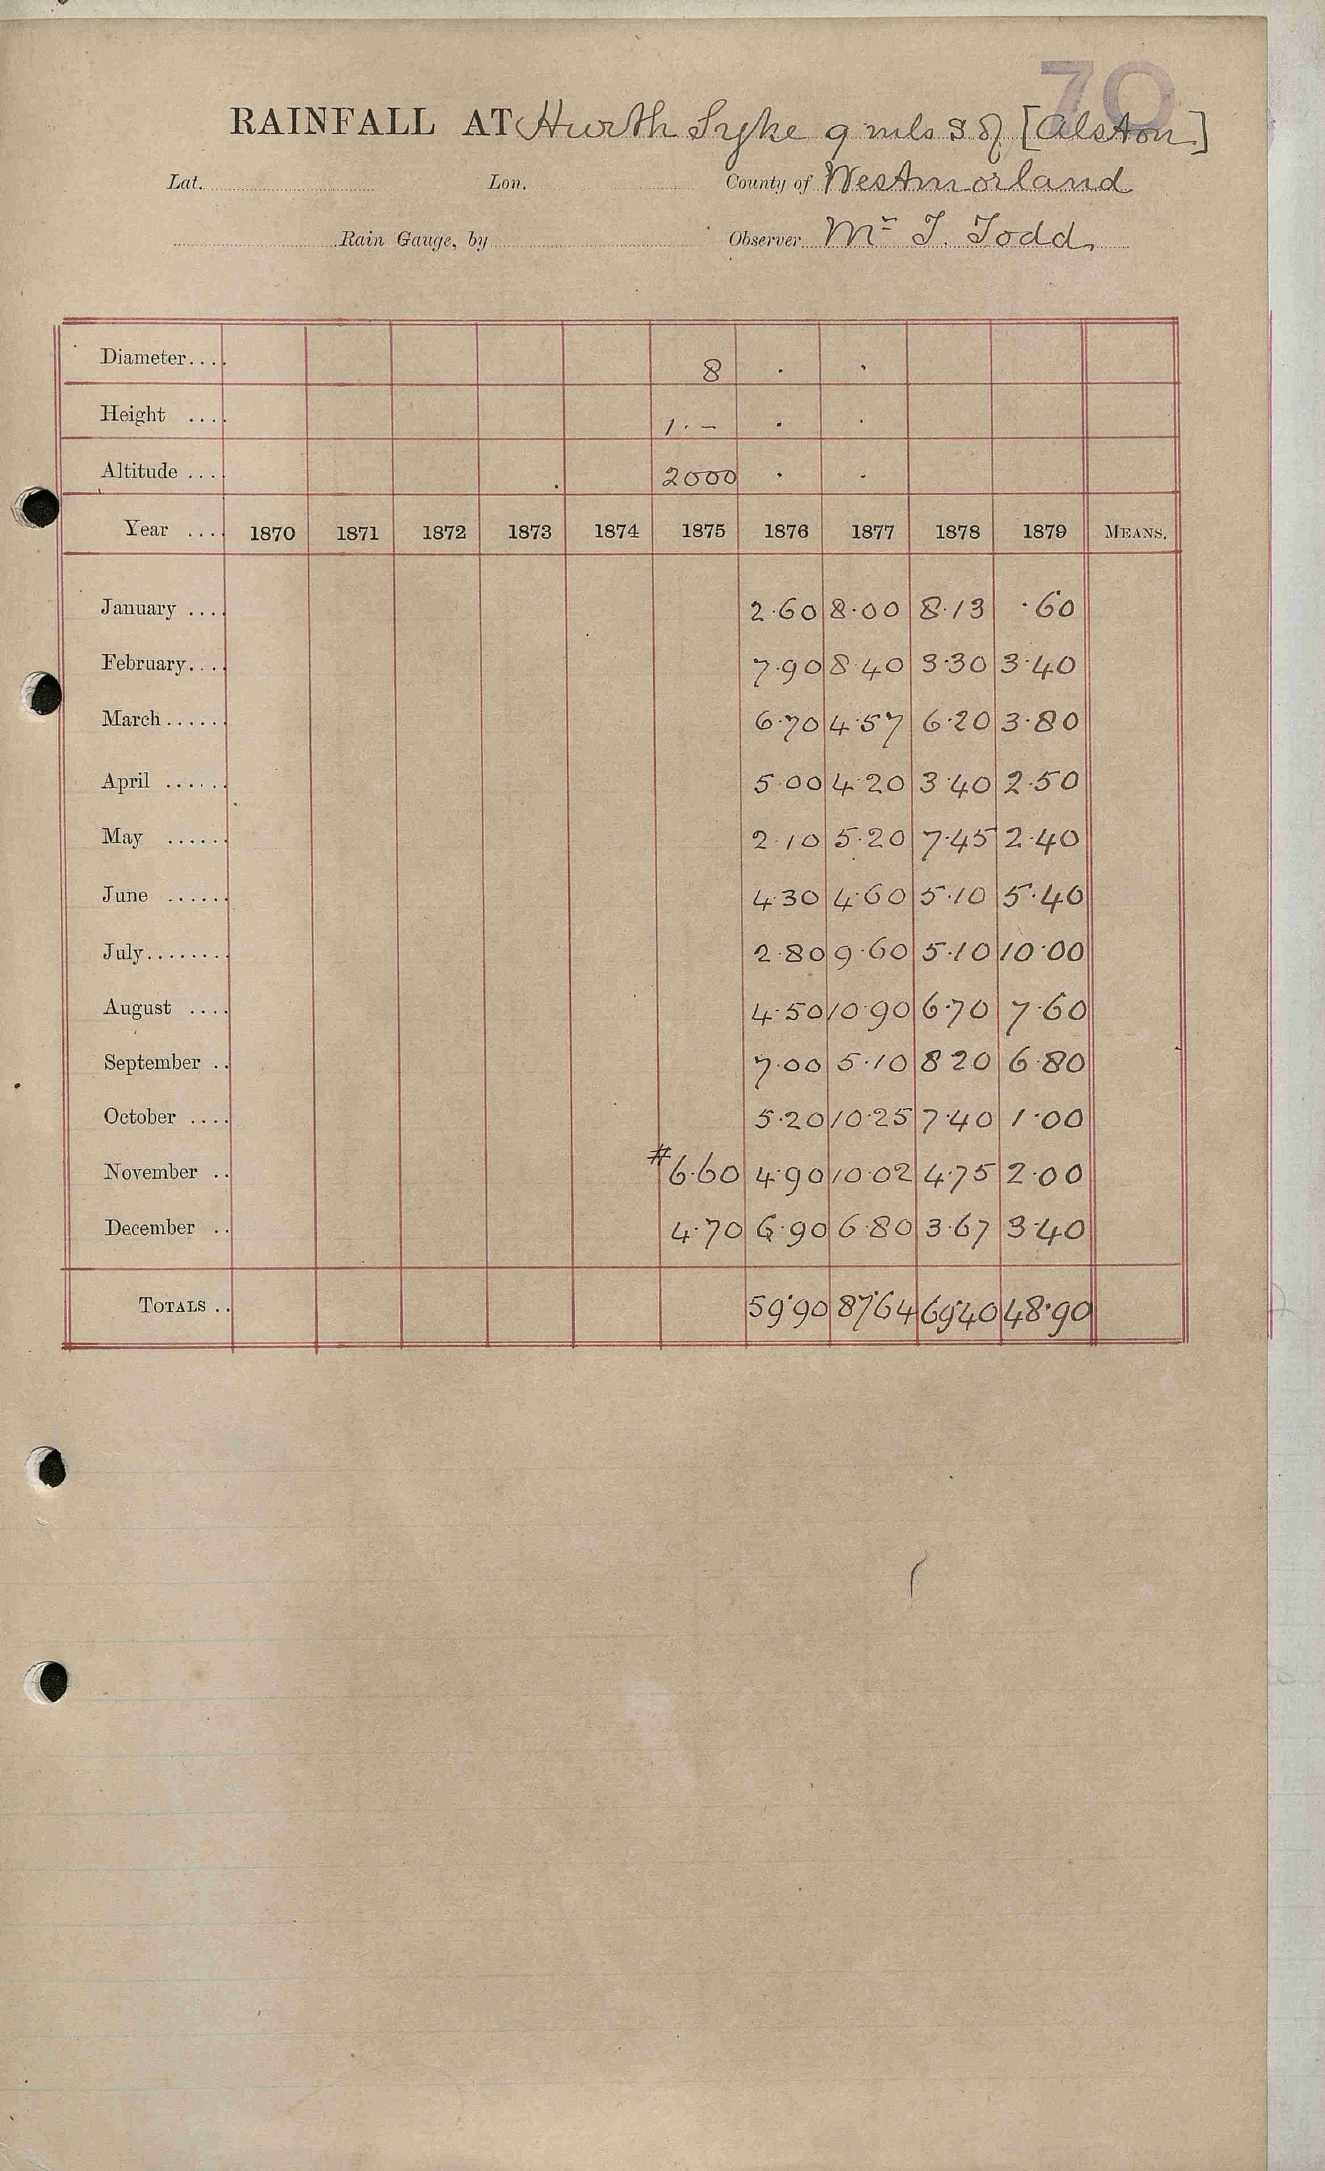 70
RAINFALL AT Hurth Syke 9 mls S of [Alston]
Lat. Lon. County of Westmorland
Rain Gauge, by Observer Mr T. Todd
Diameter.... 8 . .
Height .... 1.– . .
Altitude .... 2000 . .
Year .... 1870 1871 1872 1873 1874 1875 1876 1877 1878 1879 MEANS.
January .... 2.60 8.00 8.13 .60
February.... 7.90 8.40 3.30 3.40
March...... 6.70 4.57 6.20 3.80
April ...... 5.00 4.20 3.40 2.50
May ...... 2.10 5.20 7.45 2.40
June ...... 4.30 4.60 5.10 5.40
July........ 2.80 9.60 5.10 10.00
August .... 4.50 10.90 6.70 7.60
September .. 7.00 5.10 8 20 6.80
October .... 5.20 10.25 7.40 1.00
November .. #6.60 4.90 10.02 4.75 2.00
December .. 4.70 6.90 6.80 3.67 3.40
TOTALS .. 59.90 87.64 69.40 48.90